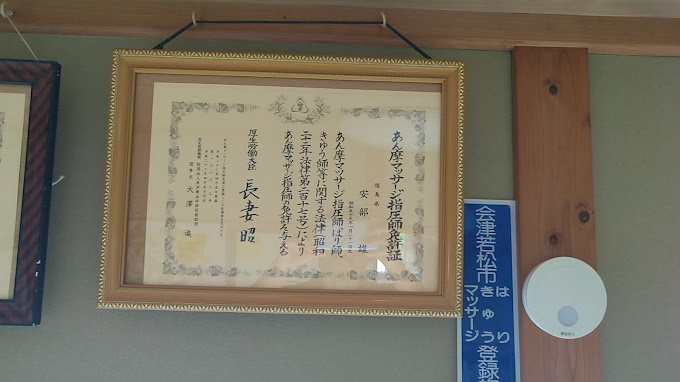 あん摩マッサージ指圧師免許証
福島県
安部 雄
あん摩マッサージ指圧師はり師、
きゆう師等に関する法律(昭和
二十二年法律第二百十七号)により
あん摩マッサージ指圧師の免許を与える
厚生労働大臣 長妻 昭
大澤 進
会津若松市
はり
きゅう
マッサージ
登録